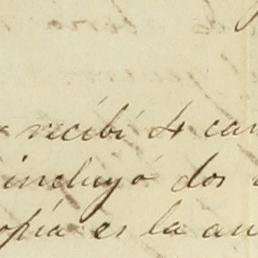 recibí 4 car
incluyó dos
opia es la an